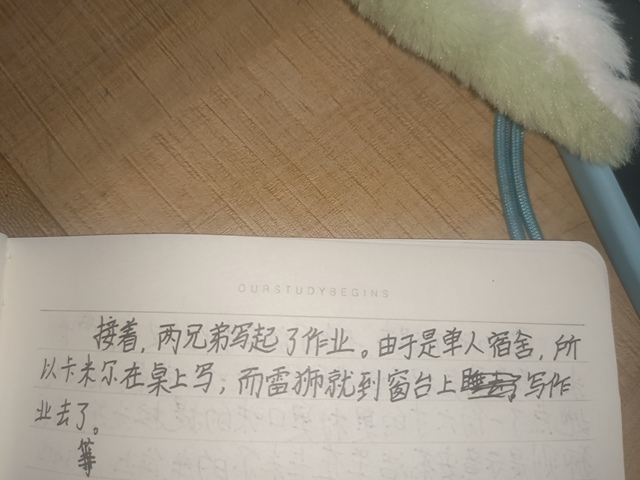 OURSTUDYBEGINS
接着，两兄弟写起了作业。由于是单人宿舍，所
以卡米尔在桌上写，而雷狮就到窗台上写作
业去了。
等